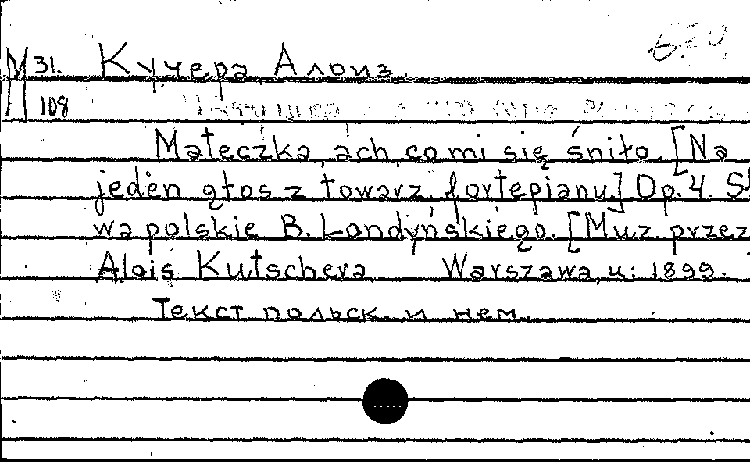 М 31. Кучера Алоиз.
108
Mateczka, ach, co mi się śniło. [Na
jeden głos z towarz. fortepianu.] Op. 4. Sł
wa polskie B. Londyńskiego. [Muz. przez
Alois Kutschera Warszawa, u: 1899.
Текст польск. и нем.